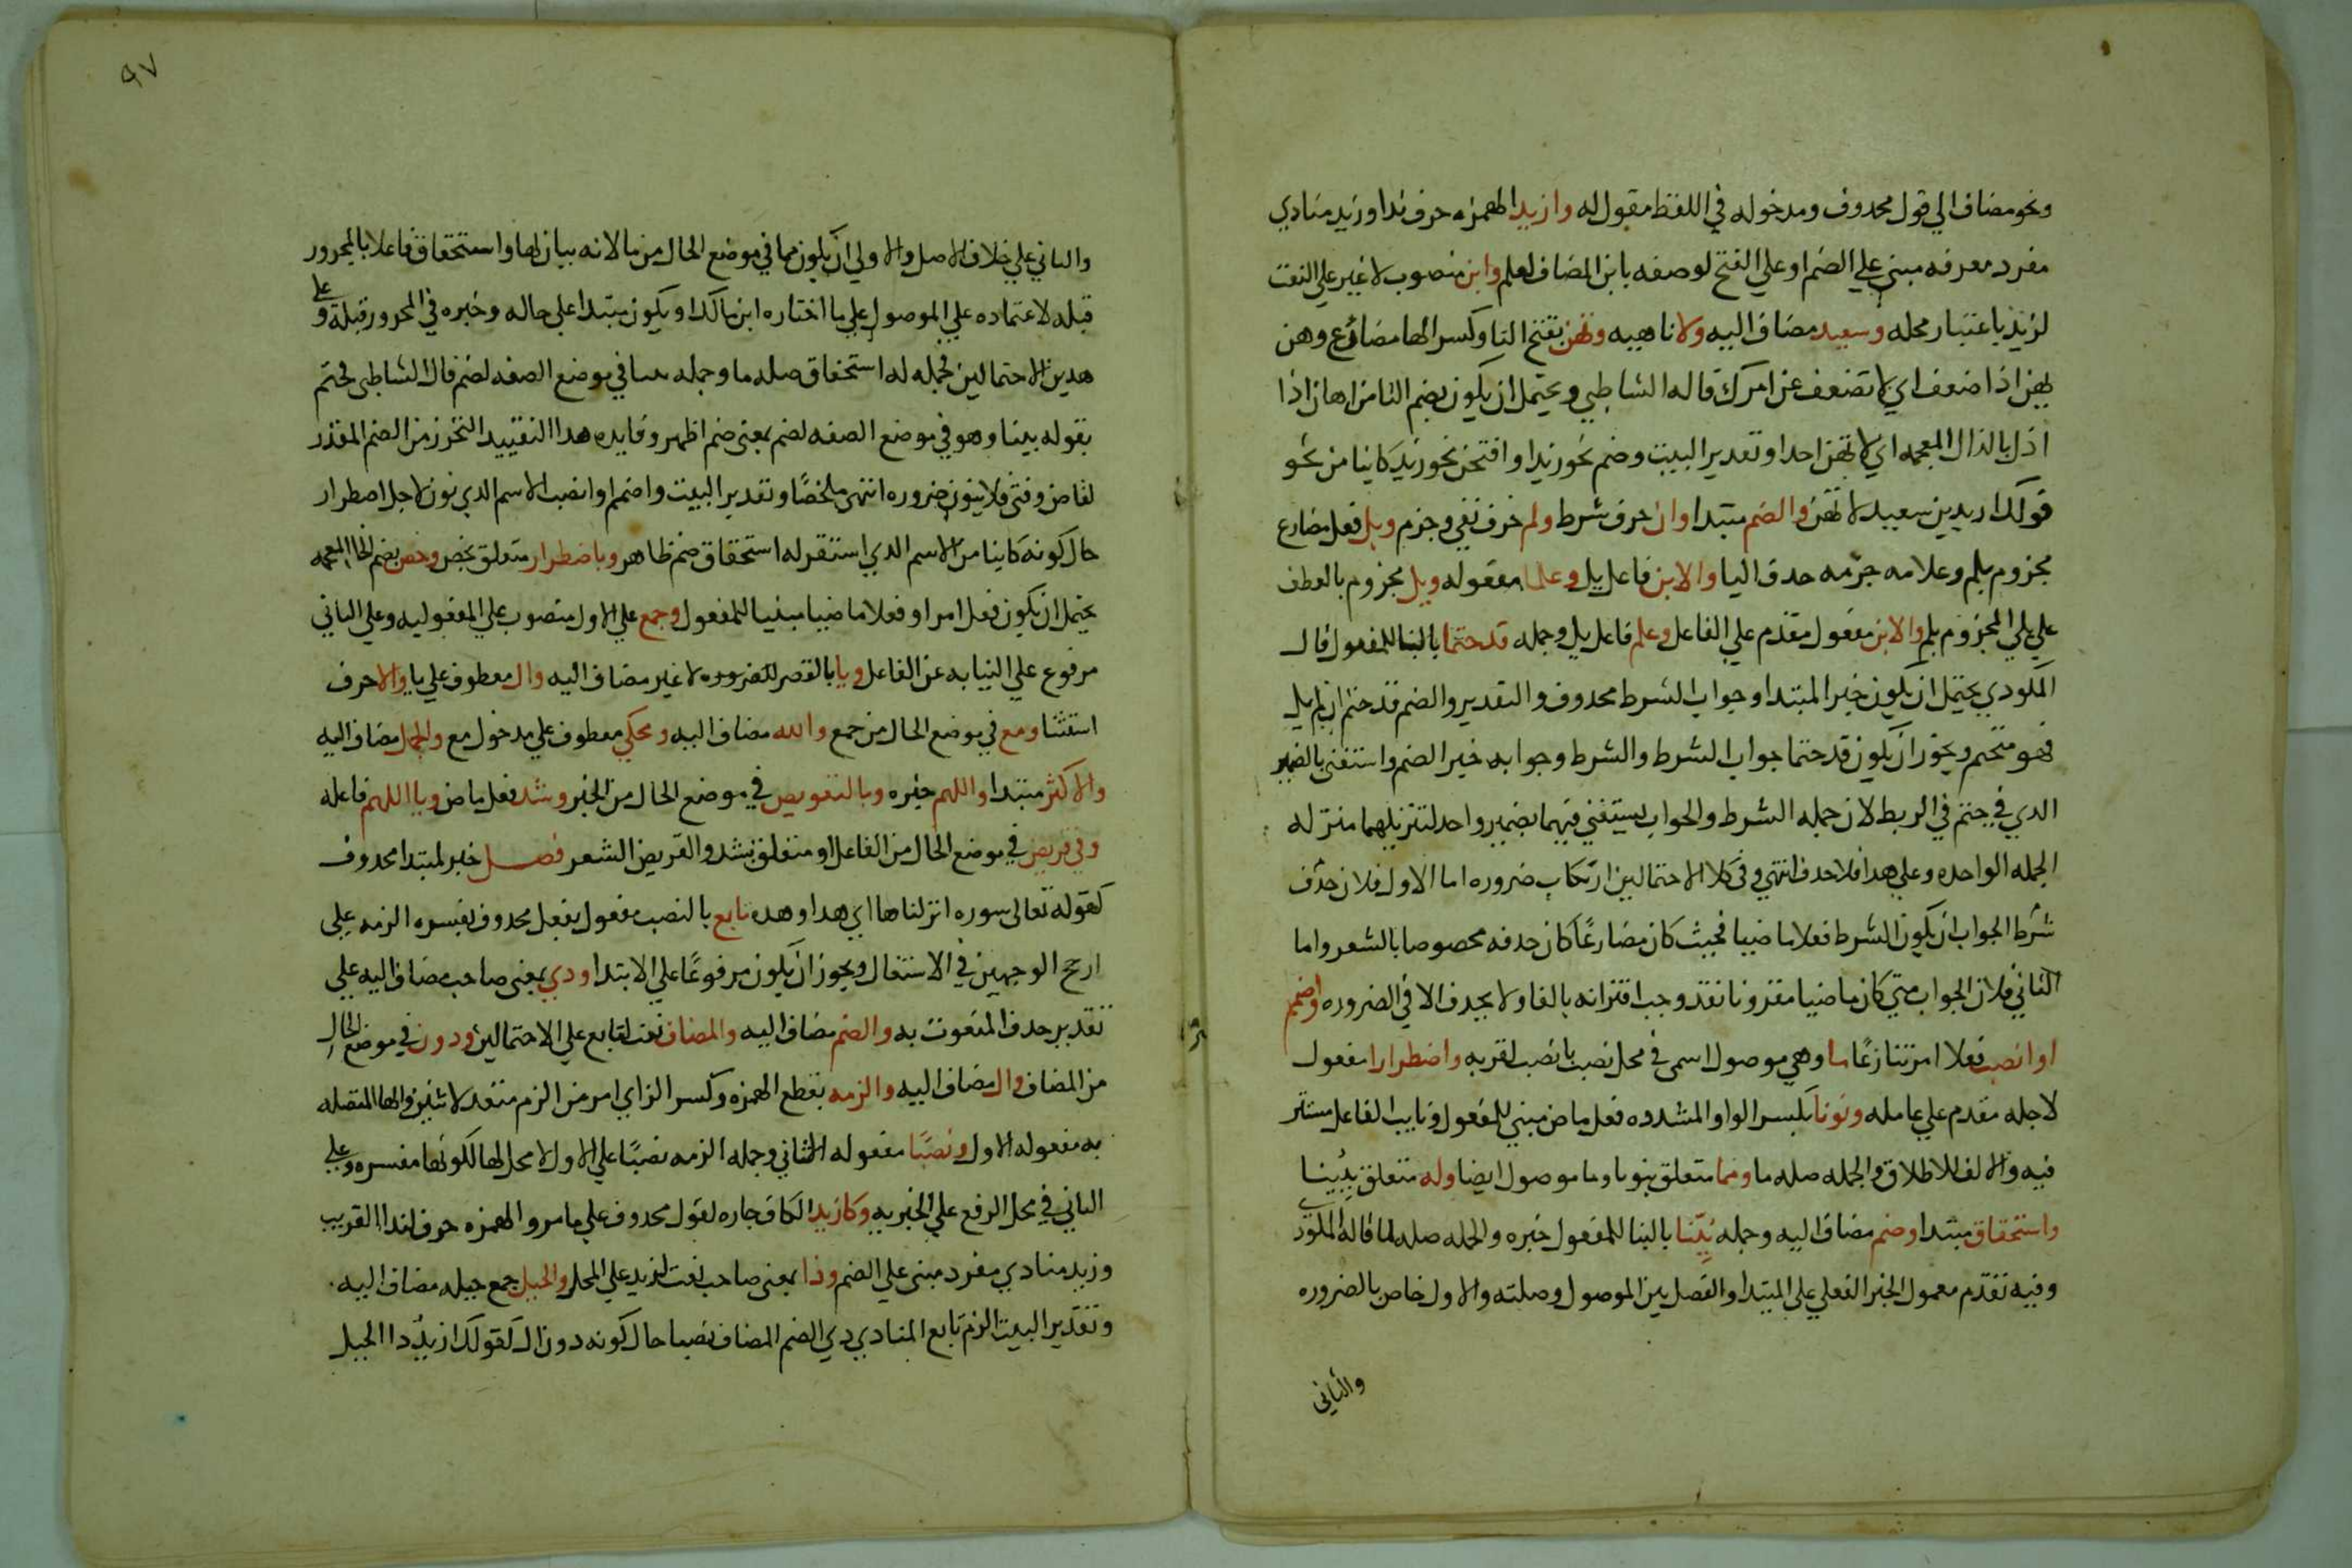 ونحو مضاف الي قول محدوف ومدخوله في اللفظ مقول له وازيد الهمزه حرف ندا وزيد منادي
مفرد معرفه مبني علي الضم او علي الفتح لوصفه بابن المضاف لعلم وابن منصوب لا غير علي النعت
لزيد باعتبار محله وسعيد مضاف اليه ولا ناهيه وتهن بفتح التا وكسر الها مضارع وهن
يهن اذا ضعف اي لا تضعف عن امرك قاله الشاطبي ويحتمل ان يكون بضم التا من اهان اذا
اذل بالذال المعجمه اي لا تهن احدا وتقدير البيت وضم نحو زيدا وافتحن نحو زيد كاينا من نحو
قولك ازيد بن سعيد لا تهن والضم مبتدا وان حرف شرط ولم حرف نفي وجزم ويل فعل مضارع
مجزوم بلم وعلامه جزمه حدف اليا والابن فاعل يل وعلما مفعوله ويل مجزوم بالعطف
علي يلي المجزوم بلم والابن مفعول مقدم علي الفاعل وعلم فاعل يل وجمله قد حتما بالبنا للمفعول قال
المكودي يحتمل ان يكون خبر المبتدا وجواب الشرط محدوف والتقدير والضم قد حتم ان لم يل
فهو متحتم ويجوز ان يكون قد حتما جواب الشرط والشرط وجوابه خبر الضم واستغني بالضمير
الدي في حتم في الربط لان جمله الشرط والجواب يستغني فيهما بضمير واحد لتنزيلهما منزله
الجمله الواحده وعلي هدا فلا حدف انتهي وفي كلا الاحتمالين ارتكاب ضروره اما الاول فلان حذف
شرط الجواب ان يكون الشرط فعلا ماضيا فحيث كان مضارعًا كان حدفه محصوصا بالشعر واما
الثاني فلان الجواب متي كان ماضيا مقرونا بقد وجب اقترانه بالفا ولا يحدف الا في الضروره واضمم
او انصب فعلا امر تنازعًا ما وهي موصول اسمي في محل نصب بانصب لقربه واضطرارا مفعول
لاجله مقدم علي عامله ونونا بكسر الواو المشدده فعل ماض مبني للمفعول ونايب الفاعل مستتر
فيه والالف للاطلاق والجمله صله ما ومما متعلق بنونا وما موصول ايضا وله متعلق ببُينا
واستحقاق مبتدا وضم مضاف اليه وجمله بُيّنا بالبنا للمفعول خبره والجمله صله لما قاله المكودي
وفيه تقدم معمول الخبر الفعلي علي المبتدا والفصل بين الموصول وصلته والاول خاص بالضروره
والثاني
٩٧
والثاني علي خلاف الاصل والاولي ان يكون مما في موضع الحال من ما لانه بيان لها واستحقاق فاعلا بالمجرور
قبله لاعتماده علي الموصول علي ما اختاره ابن مالك او يكون مبتدا علي حاله وخبره في المجرور قبله وعلي
هدين الاحتمالين فجمله له استحقاق صله ما وجمله بينا في موضع الصفه لضم قال الشاطبي فحتم
بقوله بينا وهو في موضع الصفه لضم بمعني ضم اظهر وفايده هدا التقييد التحرز من الضم المقدر
لقاض وفتي فلا ينون ضروره انتهي ملخصًا وتقدير البيت واضمم او انصب الاسم الدي نون لاجل اضطرار
حال كونه كاينا من الاسم الدي استقر له استحقاق ضم ظاهر وباضطرار متعلق بخص وخص بضم الخا المعجمه
يحتمل ان يكون فعل امر او فعلا ماضيا مبنيا للمفعول وجمع علي الاول منصوب علي المفعوليه وعلي الثاني
مرفوع علي النيابه عن الفاعل ويا بالقصر للضروره لا غير مضاف اليه وال معطوف علي يا والا حرف
استثنا ومع في موضع الحال من جمع والله مضاف اليه ومحكي معطوف علي مدخول مع والجمل مضاف اليه
والاكثر مبتدا واللهم خبره وبالتعويض في موضع الحال من الخبر وشد فعل ماض ويا اللهم فاعله
وفي قريض في موضع الحال من الفاعل او متعلق بشد والقريض الشعر فصل خبر لمبتدا محدوف
كقوله تعالي سوره انزلناها اي هدا وهده تابع بالنصب مفعول بفعل محدوف يفسره الزمه علي
ارجح الوجهين في الاشتغال ويجوز ان يكون مرفوعًا علي الابتدا ودي بمعني صاحب مضاف اليه علي
تقدير حدف المنعوت به والضم مضاف اليه والمضاف نعت لتابع علي الاحتمالين ودون في موضع الحال
من المضاف وال مضاف اليه والزمه بقطع الهمزه وكسر الزاي امر من الزم متعد لاثنين والها المتصله
به مفعوله الاول ونصبًا مفعوله الثاني وجمله الزمه نصبًا علي الاول لا محل لها لكونها مفسره وعلي
الثاني في محل الرفع علي الخبريه وكازيد الكاف جاره لقول محدوف علي ما مر والهمزه حرف لندا القريب
وزيد منادي مفرد مبني علي الضم وذا بمعني صاحب نعت لزيد علي المحل والحيل جمع حيله مضاف اليه
وتقدير البيت الزم تابع المنادي دي الضم المضاف نصبا حال كونه دون ال كقولك ازيدُ دا الحيل